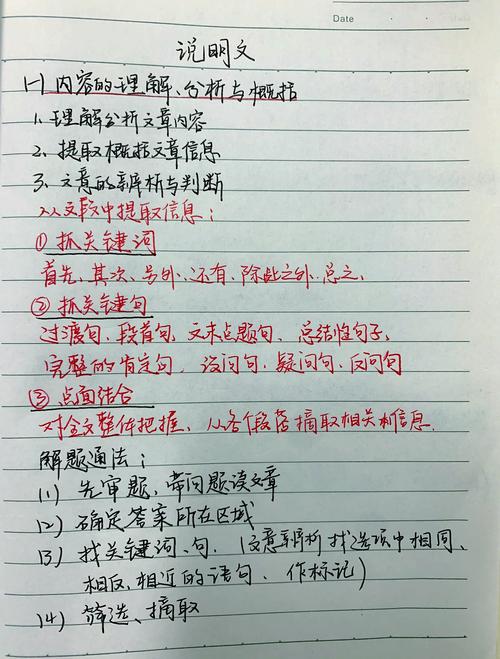 Date
说明文
(一)内容的理解、分析与概括
1. 理解分析文章内容
2. 提取概括文章信息
3. 文意的辨析与判断
从文段中提取信息：
① 抓关键词
首先、其次、另外、还有、除此之外、总之、
② 抓关键句
过渡句、段首句、文末点题句、总结性句子、
完整的肯定句、设问句、疑问句、反问句
③ 点面结合
对全文整体把握、从各个段落摘取相关信息.
解题通法：
(1) 先审题，带问题读文章
(2) 确定答案所在区域
(3) 找关键词、句. (文意辨析找选项中相同、
相反、相近的语句、作标记)
(4) 筛选、摘取